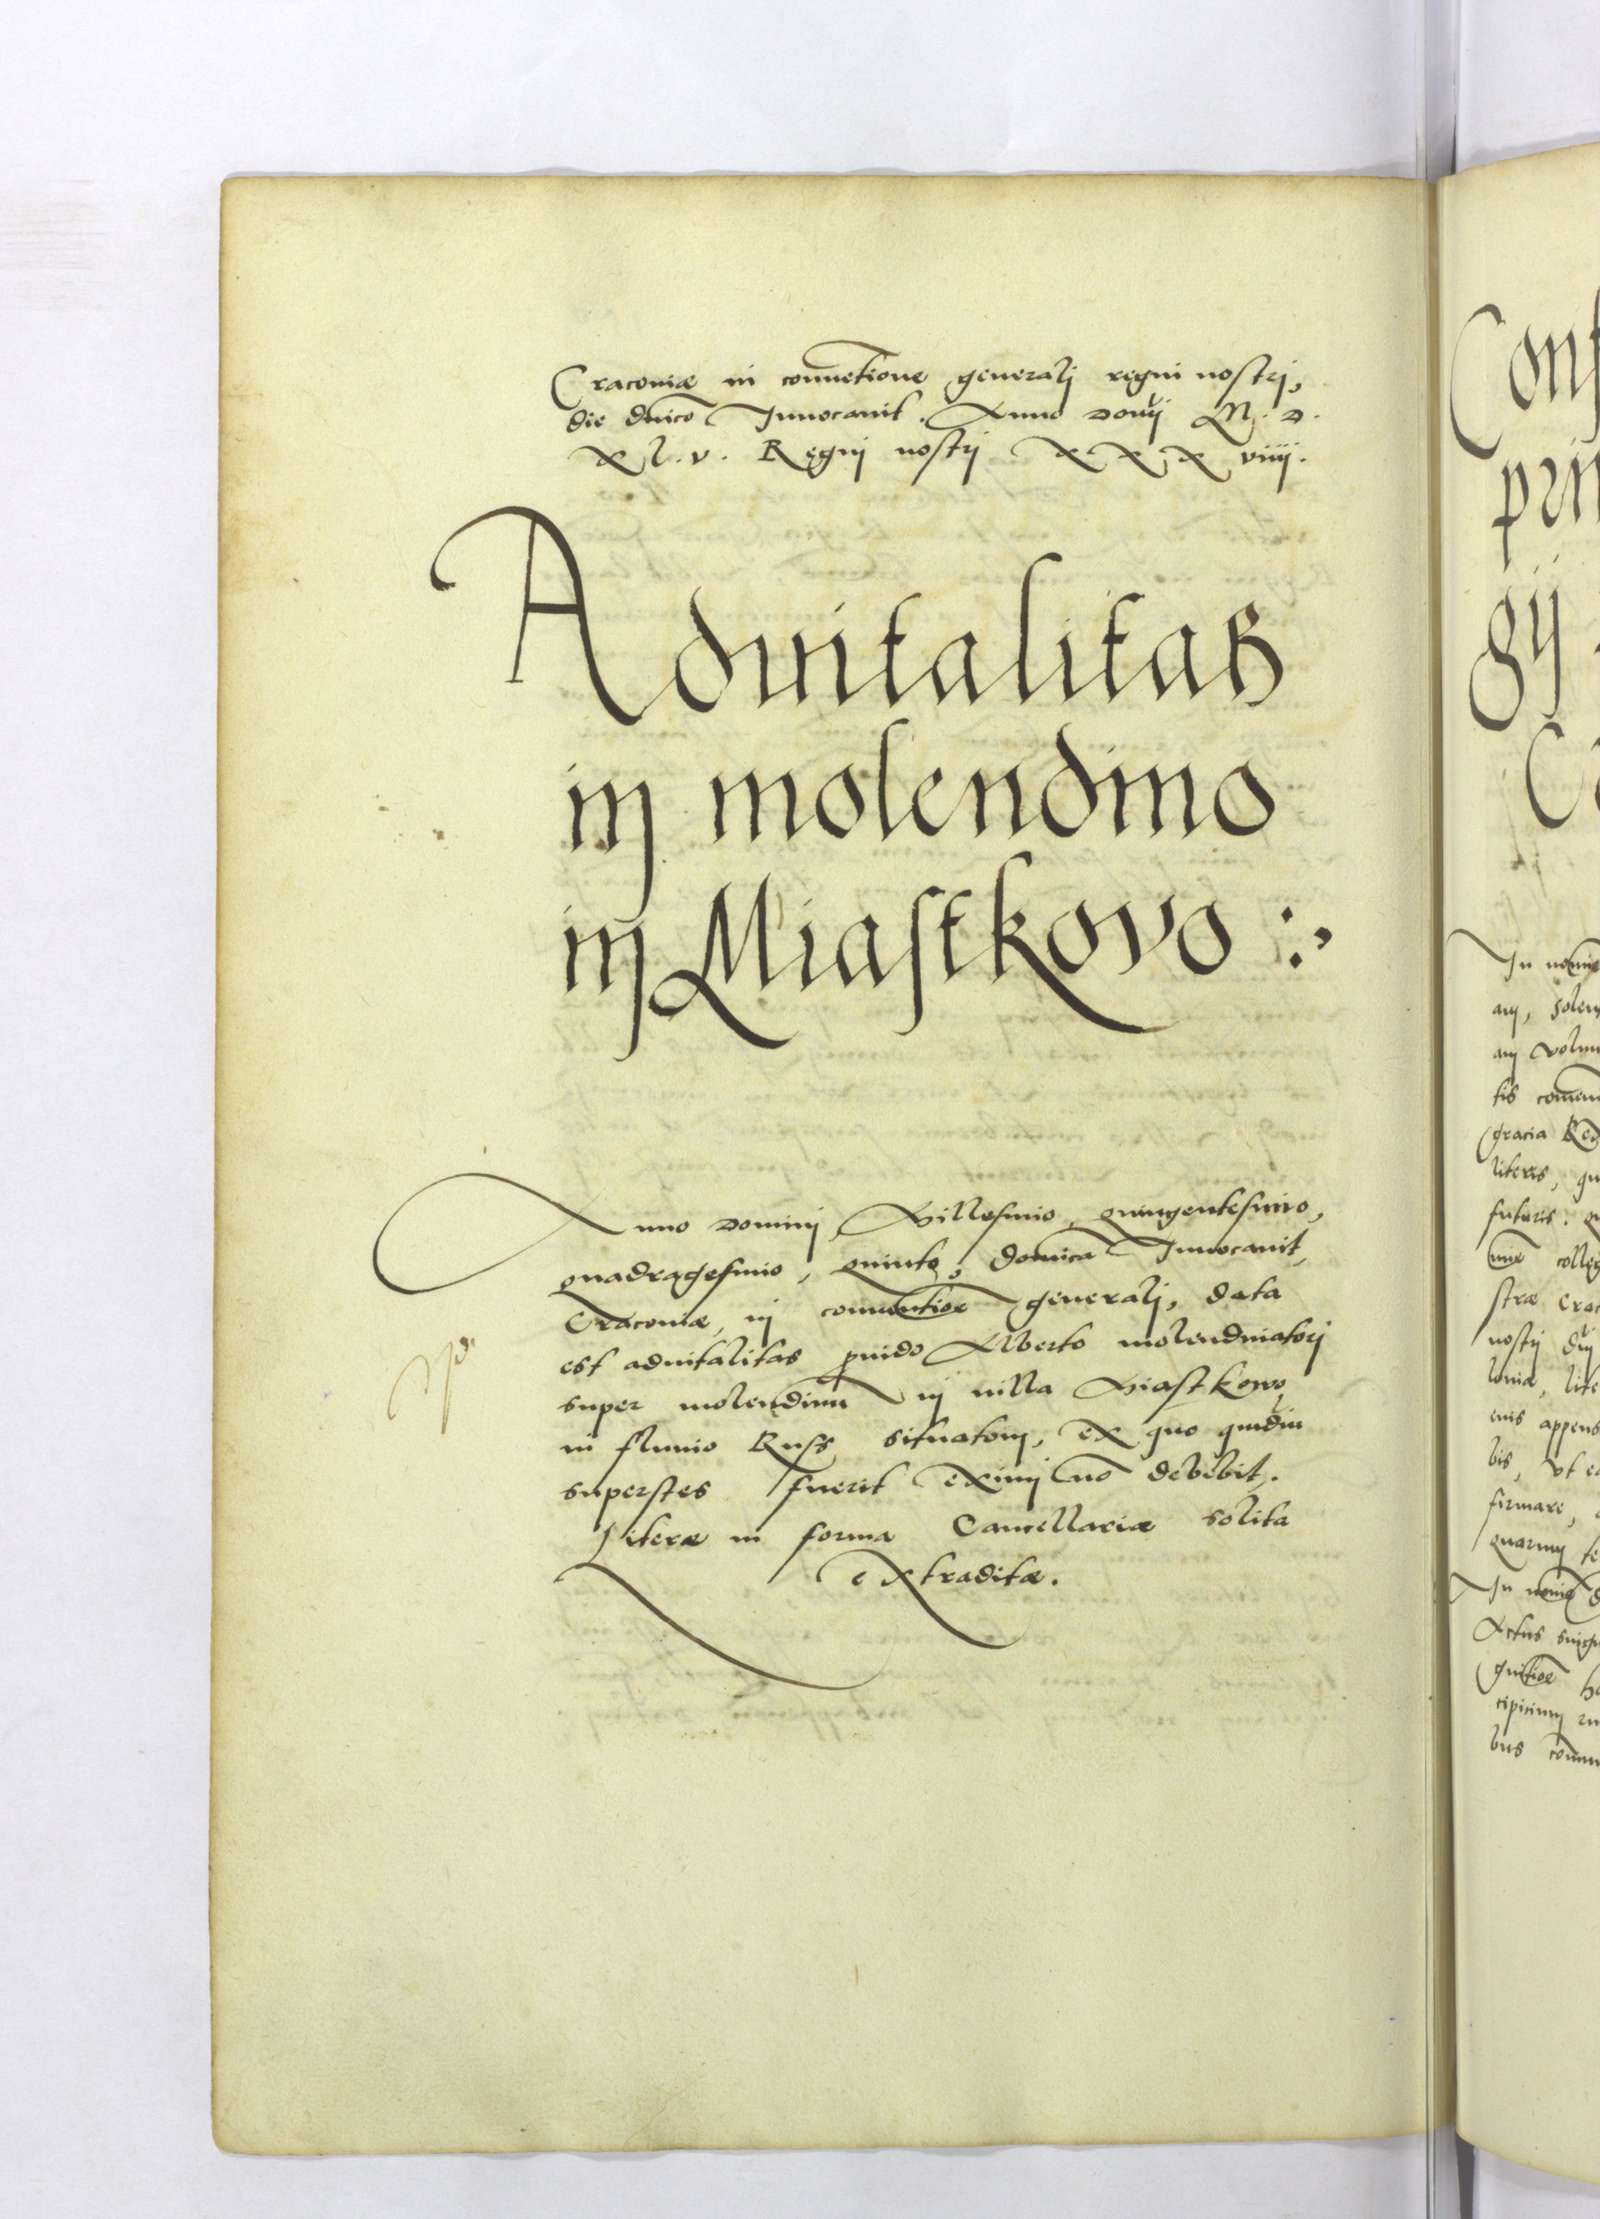 Craconiæ in conuetione generalj regni nostrj,
die dnico Innocauit. Anno donij M. D.
X L. v. Regnj nostrj X X X viiij.
Aduitalitas
in molendino
in Miastkovo :,
Anno Dominj Millesimo, quingentesimo,
quadragesimo, quinto, domica Inuocauit,
Craconiæ, in conuentioe generalj, data
est aduitalitas puido Alberto molendinatorj
super molendinu in uilla Miastkowo,
in fluuio Russ situatom, ex quo quidiu
superstes fuerit eximj no debebit.
Literæ in forma Cancellariæ solita
extraditæ.
Con
prin
gij
In nomie
am, solem
am volun
tis comen
gracia Re
literis, qu
futuris.
une colleg
stræ Crac
nostrj dnj
loniæ, lite
eius appens
bis, vt ea
firmare,
quarum te
In nomie d
Actus
gnitioe
cipicium
bus comm